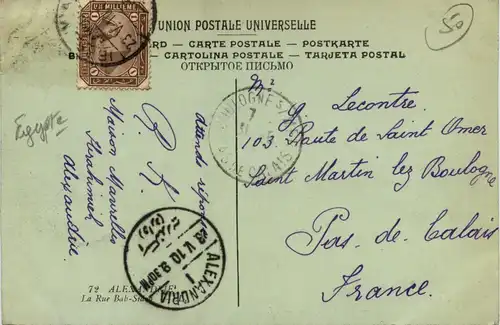 UNION POSTALE UNIVERSELLE
CARTE POSTALE — POSTKARTE
CARTOLINA POSTALE — TARJETA POSTAL
ОТКРЫТОЕ ПИСЬМО
50
UN MILLIEME
1
1
Egypte
Attend réponse
P. K.
Maison
Ibrahimieh
Alexandrie
G. Lecontre.
103, Route de Saint Omer
Saint Martin lez Boulogne
Pas. de Calais
France.
BOULOGNE S
7
PAS DE CALAIS
ALEXANDRIA
V. 10 9.30 PM
72 ALEXANDRIE
La Rue Bab-Sidra